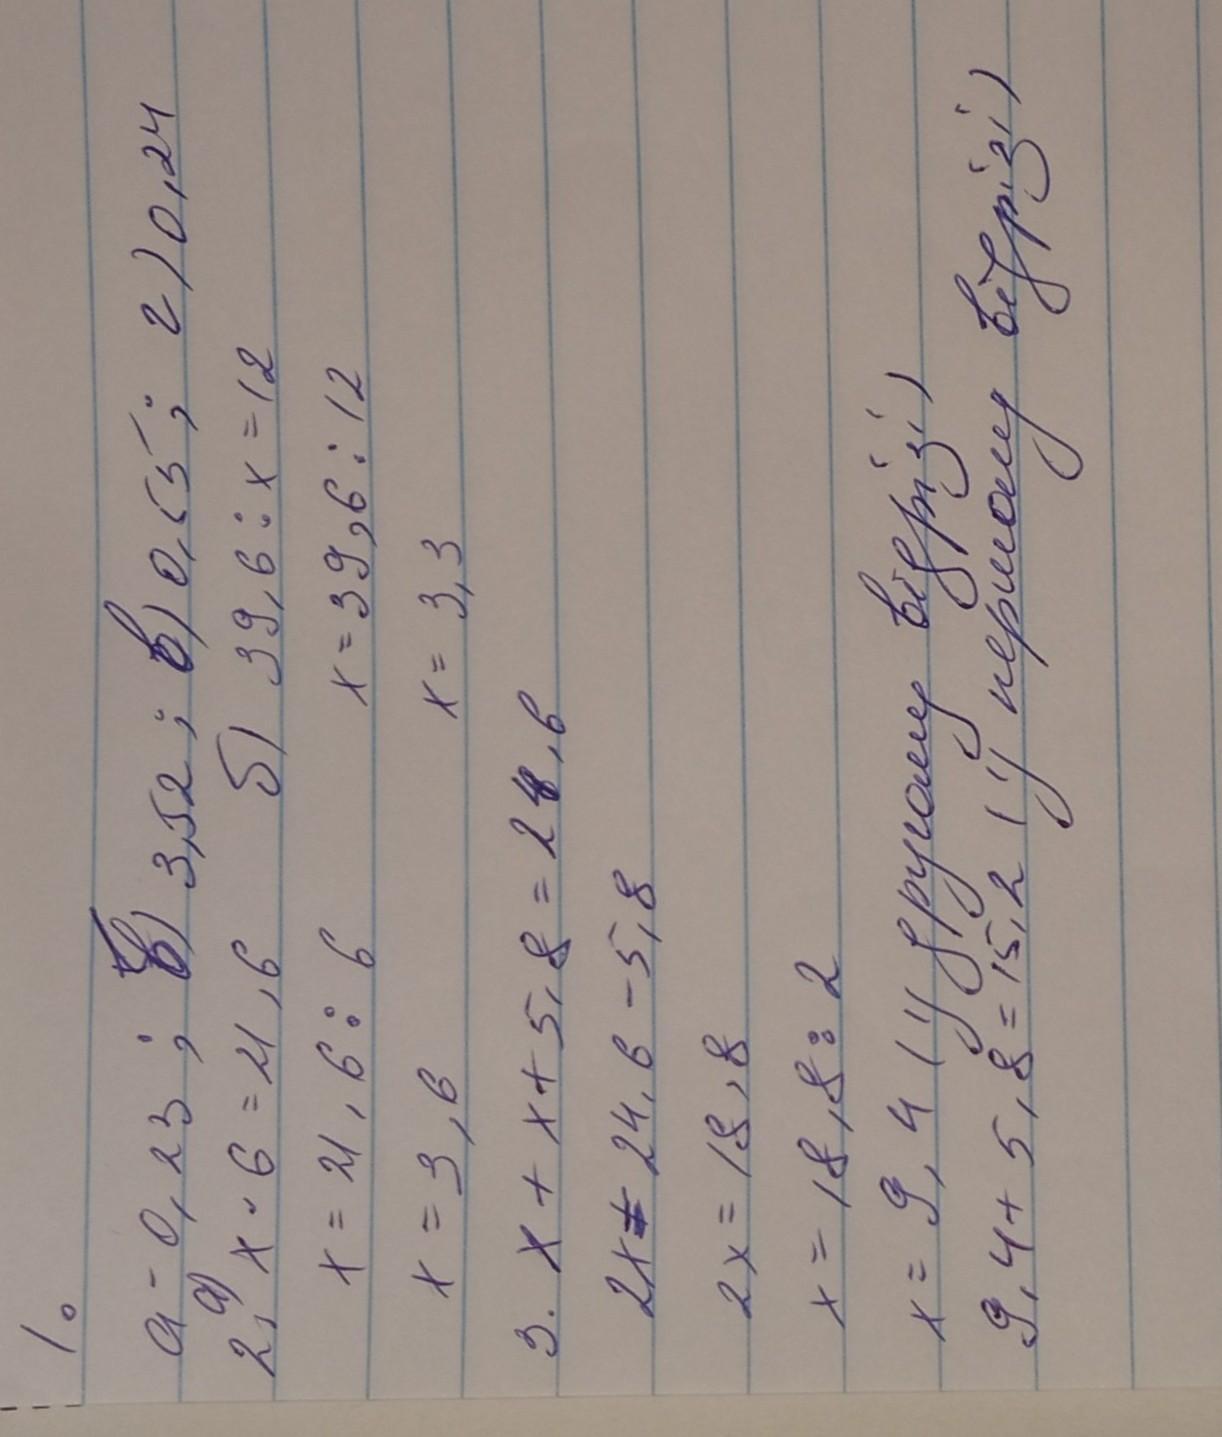 1.
а - 0,23; б) 3,52; в) 0,55; г) 0,24
2, а) x · 6 = 21,6 б) 39,6 : x = 12
x = 21,6 : 6 x = 39,6 : 12
x = 3,6 x = 3,3
3. x + x + 5,8 = 24,6
2x = 24,6 - 5,8
2x = 18,8
x = 18,8 : 2
x = 9,4 (у другому відрізі)
9,4 + 5,8 = 15,2 (у першому відрізі)